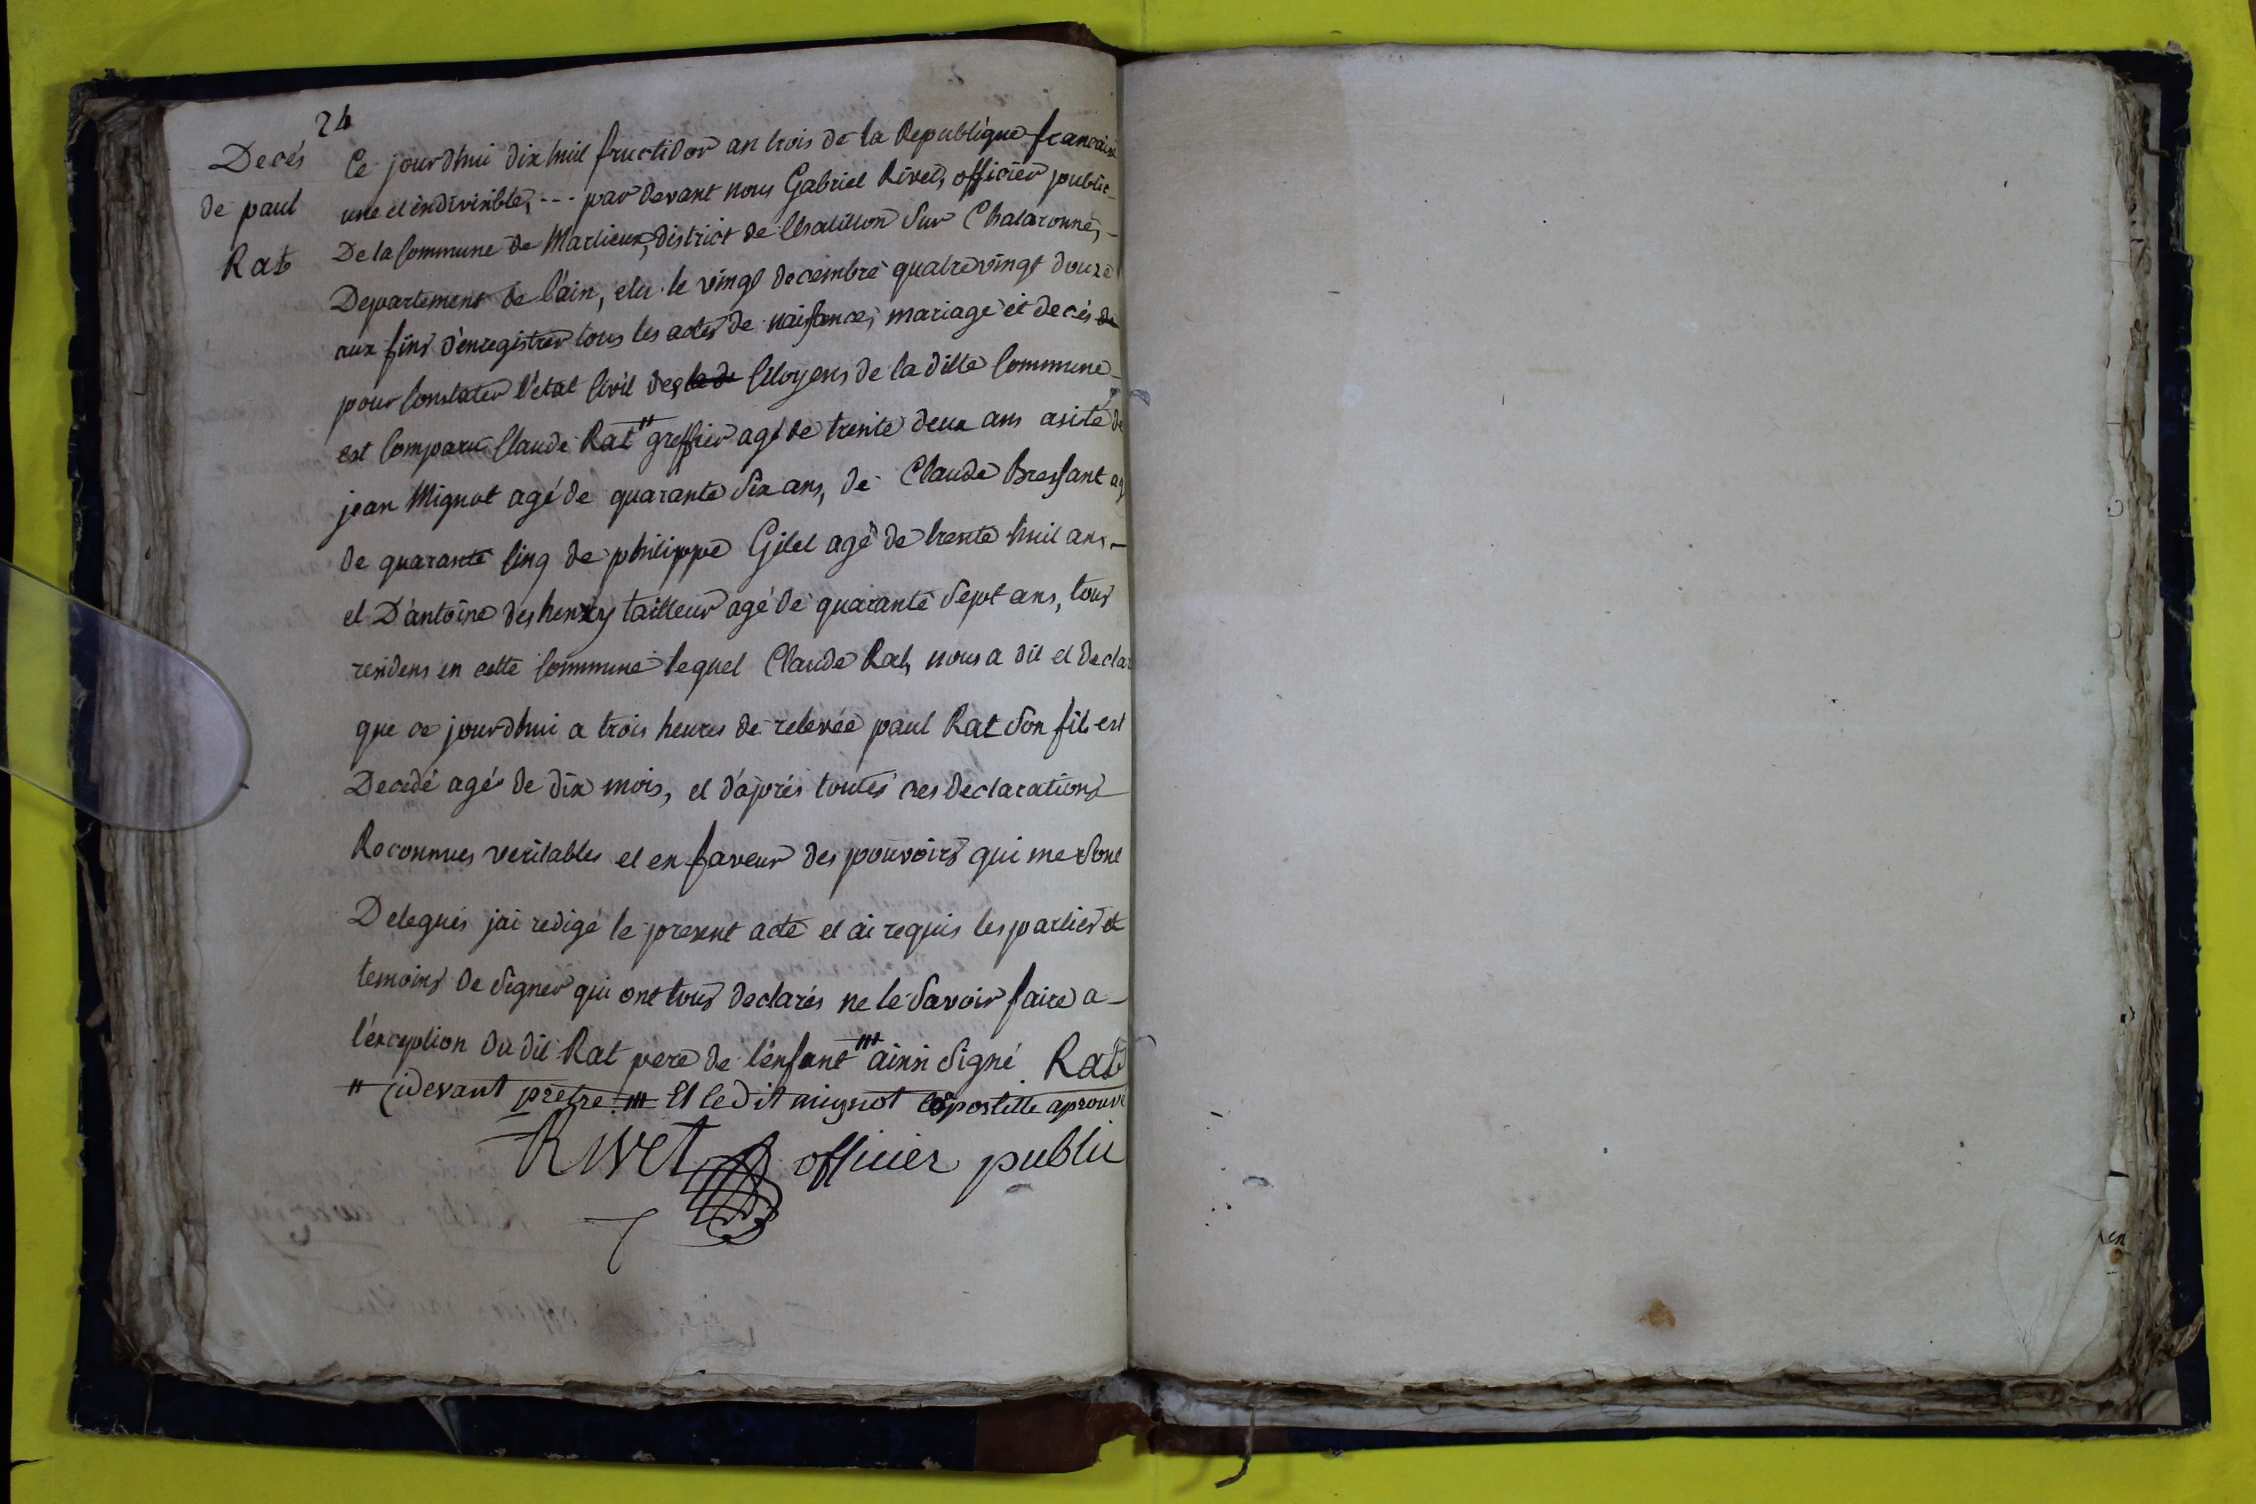 24
Decés
de paul
Rat
Ce jourdhui dix huit fructidor an trois de la Republique francaise
une et indivisible, --- par devant nous Gabriel Rivet, officier public
De la Commune de Marlieux, district de Chatillon Sur Chalaronne, -
Departement de l'ain, elu le vingt decembre quatrevingt douze
aux fins d'enregistrer tous les actes de naissance, mariage et decés de
pour Constater l'état Civil des la de Citoyens de la ditte Commune
est Comparu Claude Rat " greffier agé de trente deux ans asisté de
jean Mignot agé de quarante Six ans, de Claude Bressant ag
de quarante Cinq de philippe Gilet agé de trente huit ans -
et D'antoine deshenry tailleur agé de quarante Sept ans, tous
residens en cette Commune lequel Claude Rat, nous a dit et declar
que ce jourdhui a trois heures de relevée paul Rat Son fils est
Decedé agé de dix mois, et d'aprés toutes ces declarations
Reconnues veritables et en faveur des pouvoirs qui me Sont
Delegués j'ai redigé le present acte et ai requis les parties et
temoins de Signer qui ont tous declarés ne le Savoir faire a -
l'exception du dit Rat pere de l'enfant ''' ainsi Signé Rat
" Cidevant prêtre ''' Et ledit mignot apostille aprouvé
Rivet officier public
en